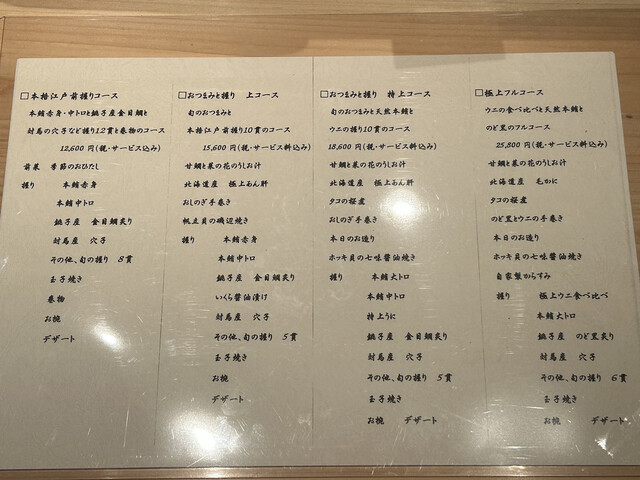 □本格江戸前握りコース
本鮪赤身・中トロと銚子産金目鯛と
対馬の穴子など握り12貫と巻物のコース
12,600円(税・サービス料込み)
前菜 季節のおひたし
握り 本鮪赤身
本鮪中トロ
銚子産 金目鯛炙り
対馬産 穴子
その他、旬の握り 8貫
玉子焼き
巻物
お椀
デザート
□おつまみと握り 上コース
旬のおつまみと
本格江戸前握り10貫のコース
15,600円(税・サービス料込み)
甘鯛と菜の花のうしお汁
北海道産 極上あん肝
おしのぎ手巻き
帆立貝の磯辺焼き
握り 本鮪赤身
本鮪中トロ
銚子産 金目鯛炙り
いくら醤油漬け
対馬産 穴子
その他、旬の握り 5貫
玉子焼き
お椀
デザート
□おつまみと握り 特上コース
旬のおつまみと天然本鮪と
ウニの握り10貫のコース
18,600円(税・サービス料込み)
甘鯛と菜の花のうしお汁
北海道産 極上あん肝
タコの桜煮
おしのぎ手巻き
本日のお造り
ホッキ貝の七味醤油焼き
握り 本鮪大トロ
本鮪中トロ
特上うに
銚子産 金目鯛炙り
対馬産 穴子
その他、旬の握り 5貫
玉子焼き
お椀 デザート
□極上フルコース
ウニの食べ比べと天然本鮪と
のど黒のフルコース
25,800円(税・サービス料込み)
甘鯛と菜の花のうしお汁
北海道産 毛かに
タコの桜煮
のど黒とウニの手巻き
本日のお造り
ホッキ貝の七味醤油焼き
自家製からすみ
握り 極上ウニ食べ比べ
本鮪大トロ
銚子産 のど黒炙り
対馬産 穴子
その他、旬の握り 6貫
玉子焼き
お椀 デザート